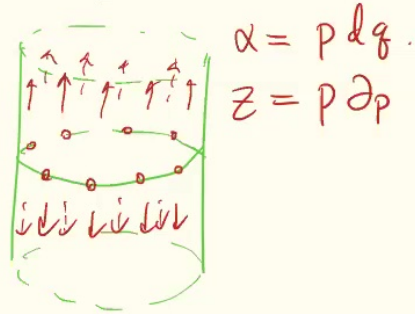 α = p dq.
Z = p ∂p